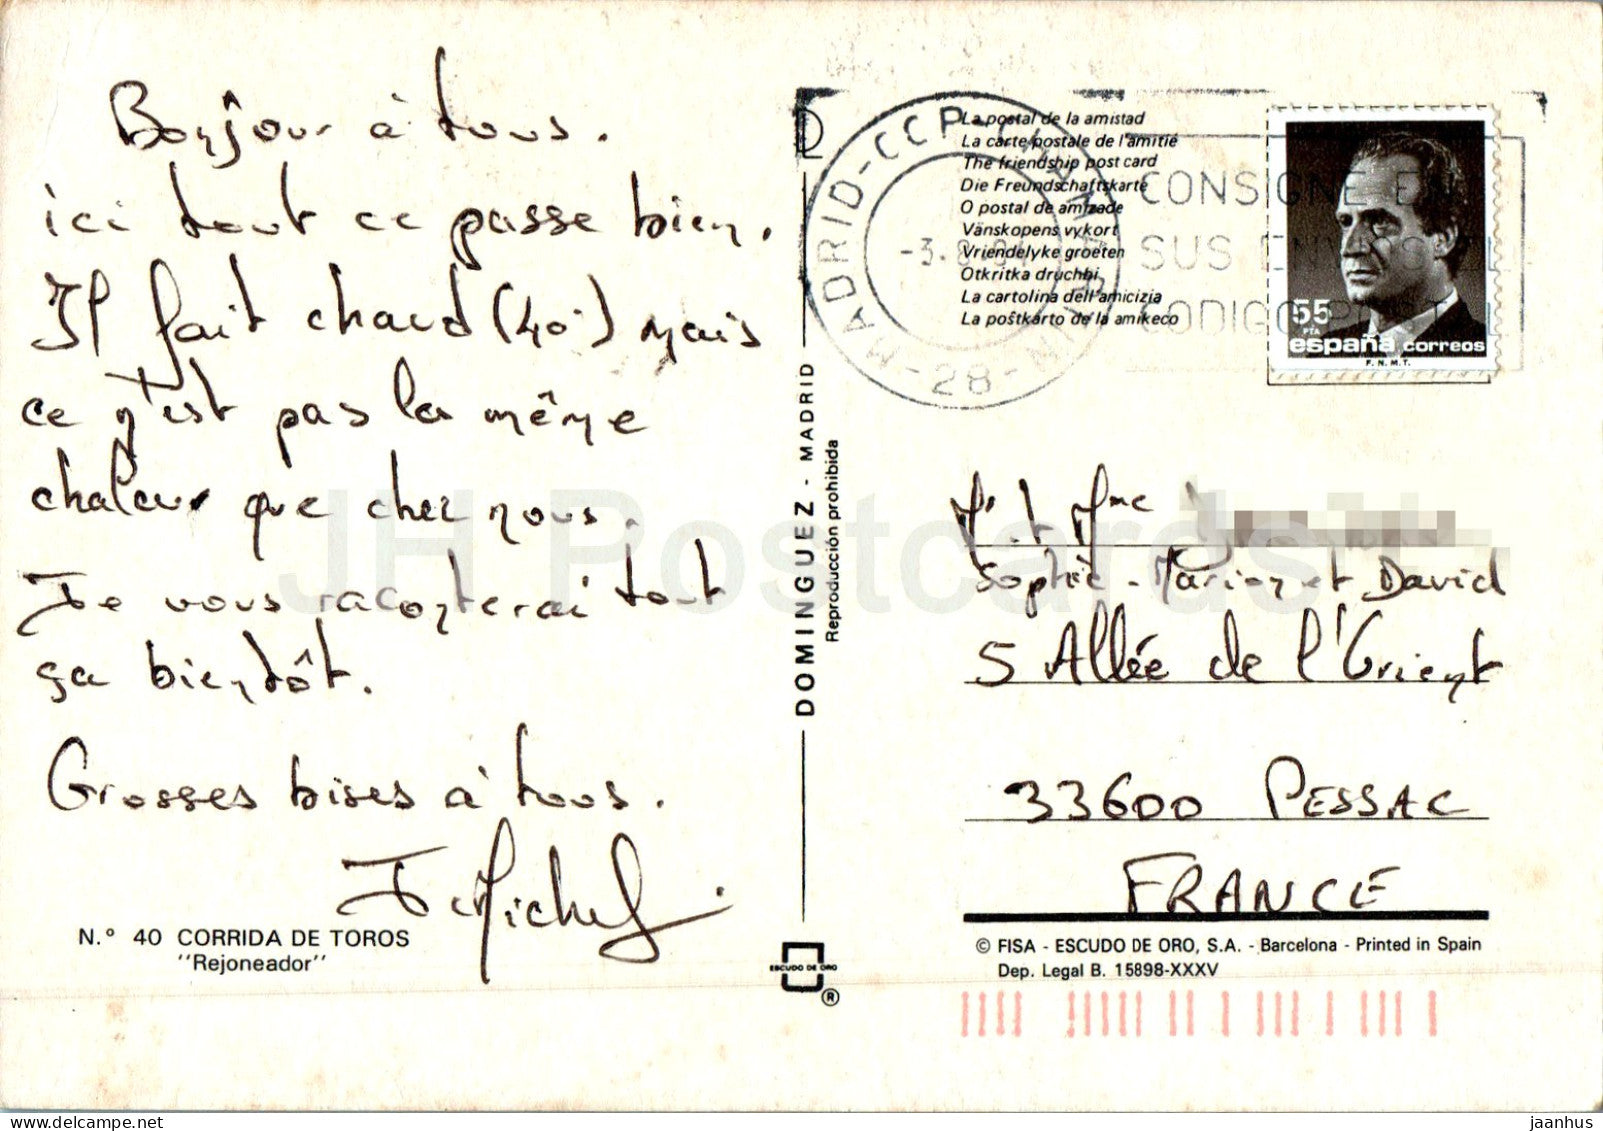 Bonjour à tous.
ici tout ce passe bien.
Il fait chaud (40°) mais
ce n'est pas la même
chaleur que chez nous.
Je vous raconterai tout
ça bientôt.
Grosses bises à tous.
J Michel
N.° 40 CORRIDA DE TOROS
"Rejoneador"
DOMINGUEZ - MADRID
Reproducción prohibida
ESCUDO DE ORO
®
La postal de la amistad
La carte postale de l'amitié
The friendship post card
Die Freundschaftskarte
O postal de amizade
Vänskopens vykort
Vriendelyke groeten
Otkritka druchbi
La cartolina dell'amicizia
La poŝtkarto de la amikeco
MADRID-CCP-CHAMARTIN
-28-
CONSIGNE EN
SUS ENVIOS EL
CODIGO POSTAL
55
PTA
españa correos
F.N.M.T.
Mr. et Mme
Sophie - Marion et David
5 Allée de l'Orient
33600 PESSAC
FRANCE
© FISA - ESCUDO DE ORO, S.A. - Barcelona - Printed in Spain
Dep. Legal B. 15898-XXXV
JH Postcards
jaanhus